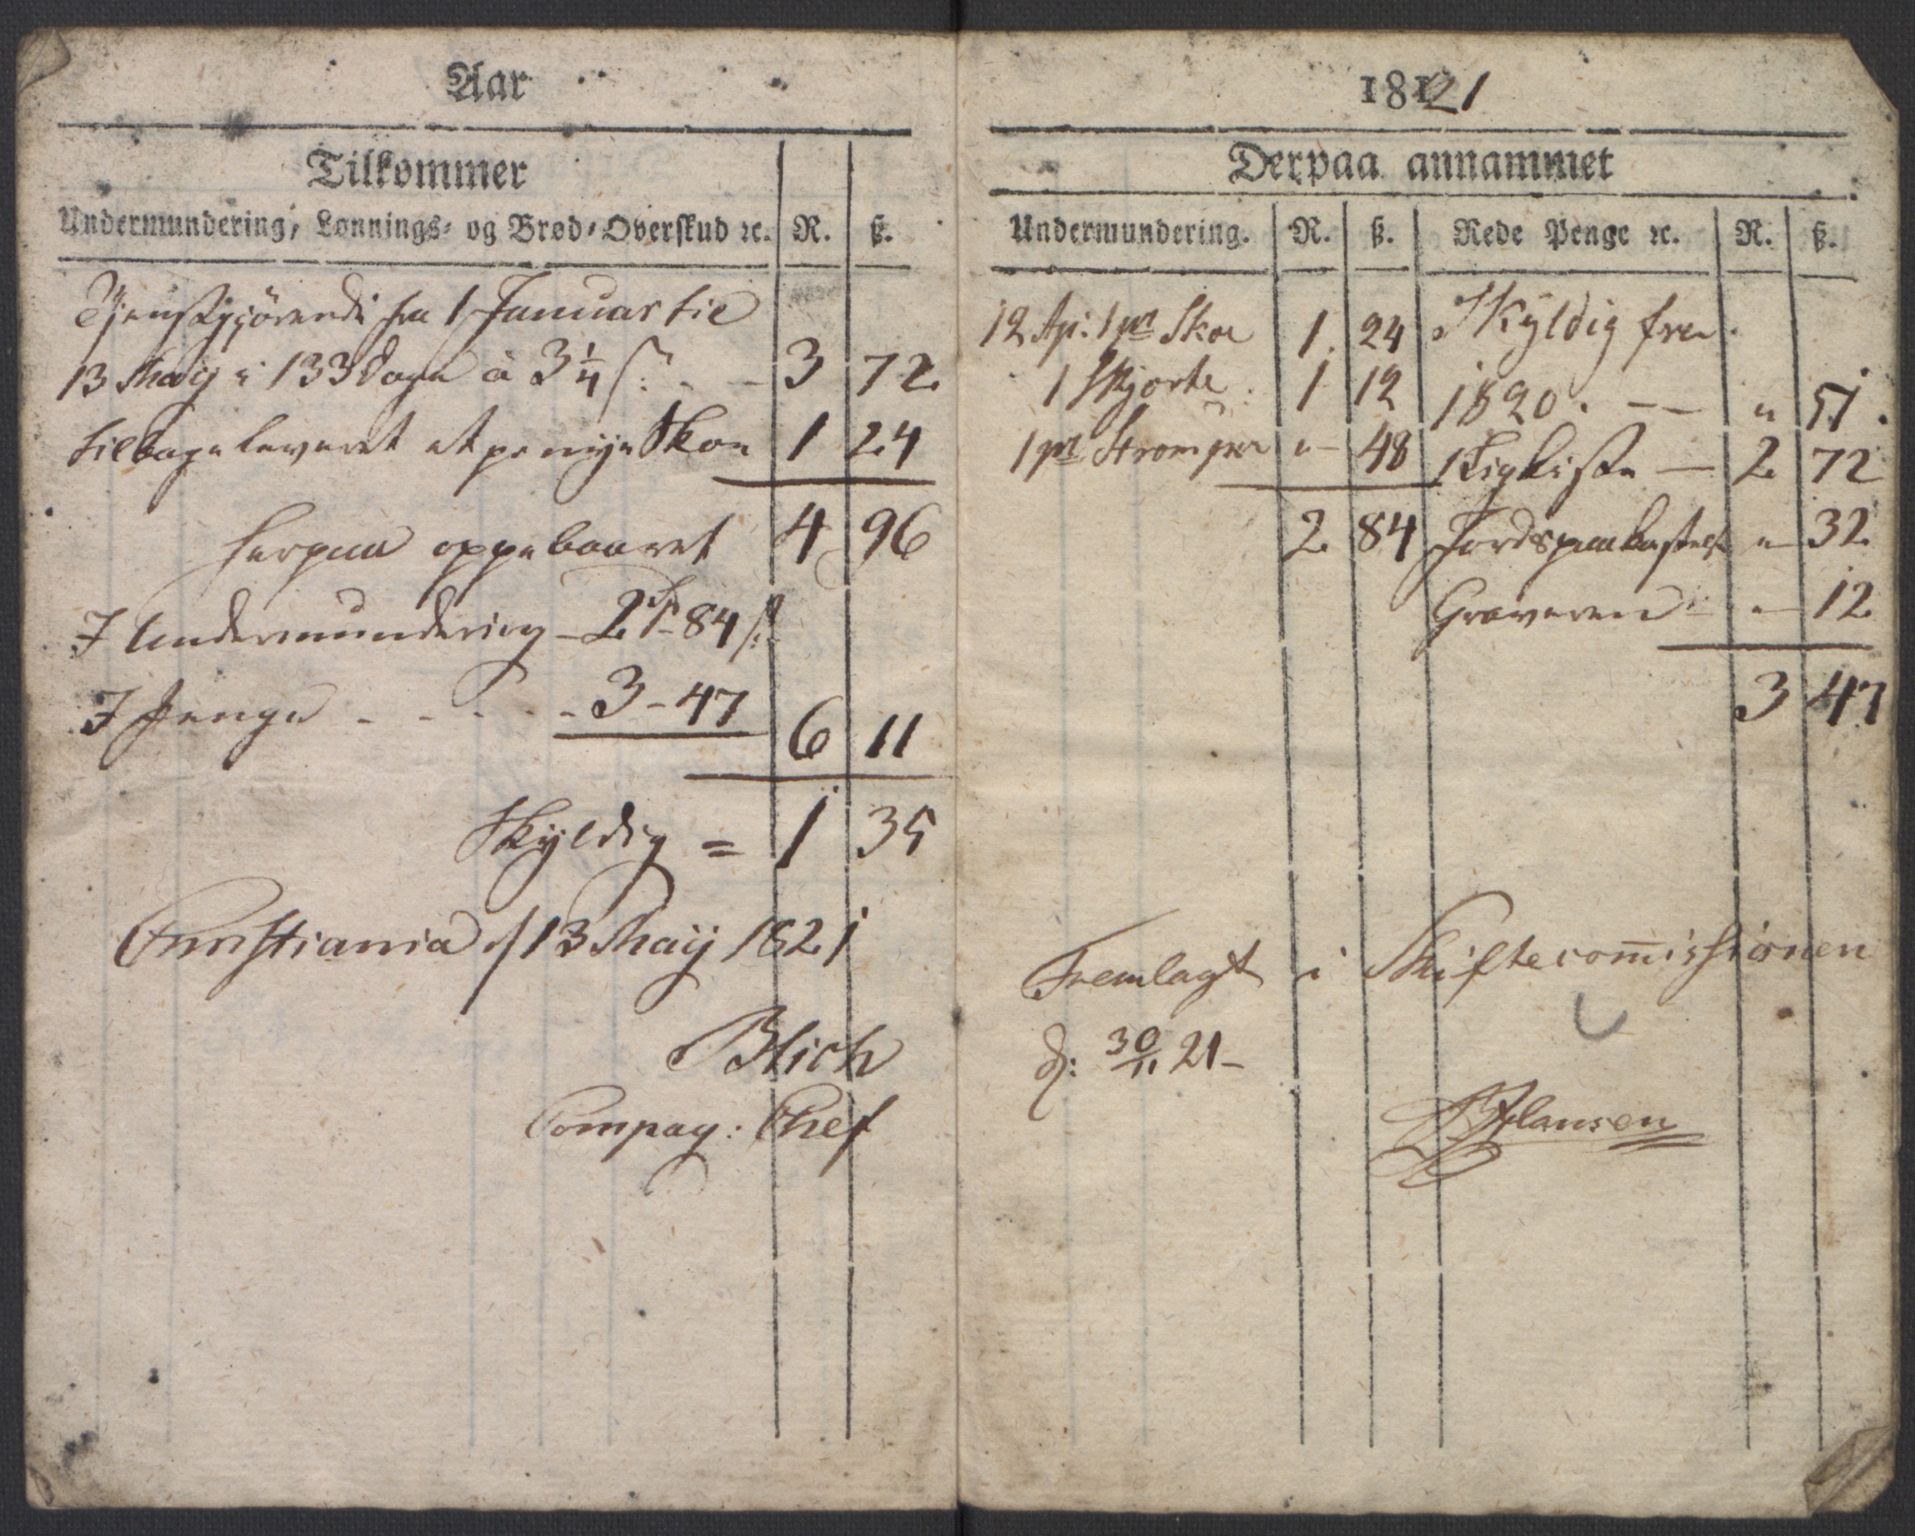 Aar
Tilkommer
Undermundering, Lønnings- og Brød-Overskud ꝛc. R. ß.
Tjenstgjørende fra 1 Januar til
13 Maij i 133 Dage à 3 1/4 ß: - - 3 72
tilbageleveret et par nye Skoe 1 24
herpaa oppebaaret 4 96
I Undermundering - 2 - 84 ß:
I Penge - - - - - 3 - 47 6 11
Skyldig = 1 35
Christiania d 13 Maij 1821
Blich
Compag: Chef
1821
Derpaa annammet
Undermundering. R. ß. Rede Penge ꝛc. R. ß.
12 Ap: 1 pr Skoe 1 24 Skyldig fra
1 Skjorte 1 12 1820. - - " 51.
1 pr Strømper " - 48 1 Ligkiste - 2 72
2 84 Jordspaakastelse " - 32
Graveren " - 12
3 47
Fremlagt i Skiftecom̄issionen
d: 30/11 21 -
Hansen